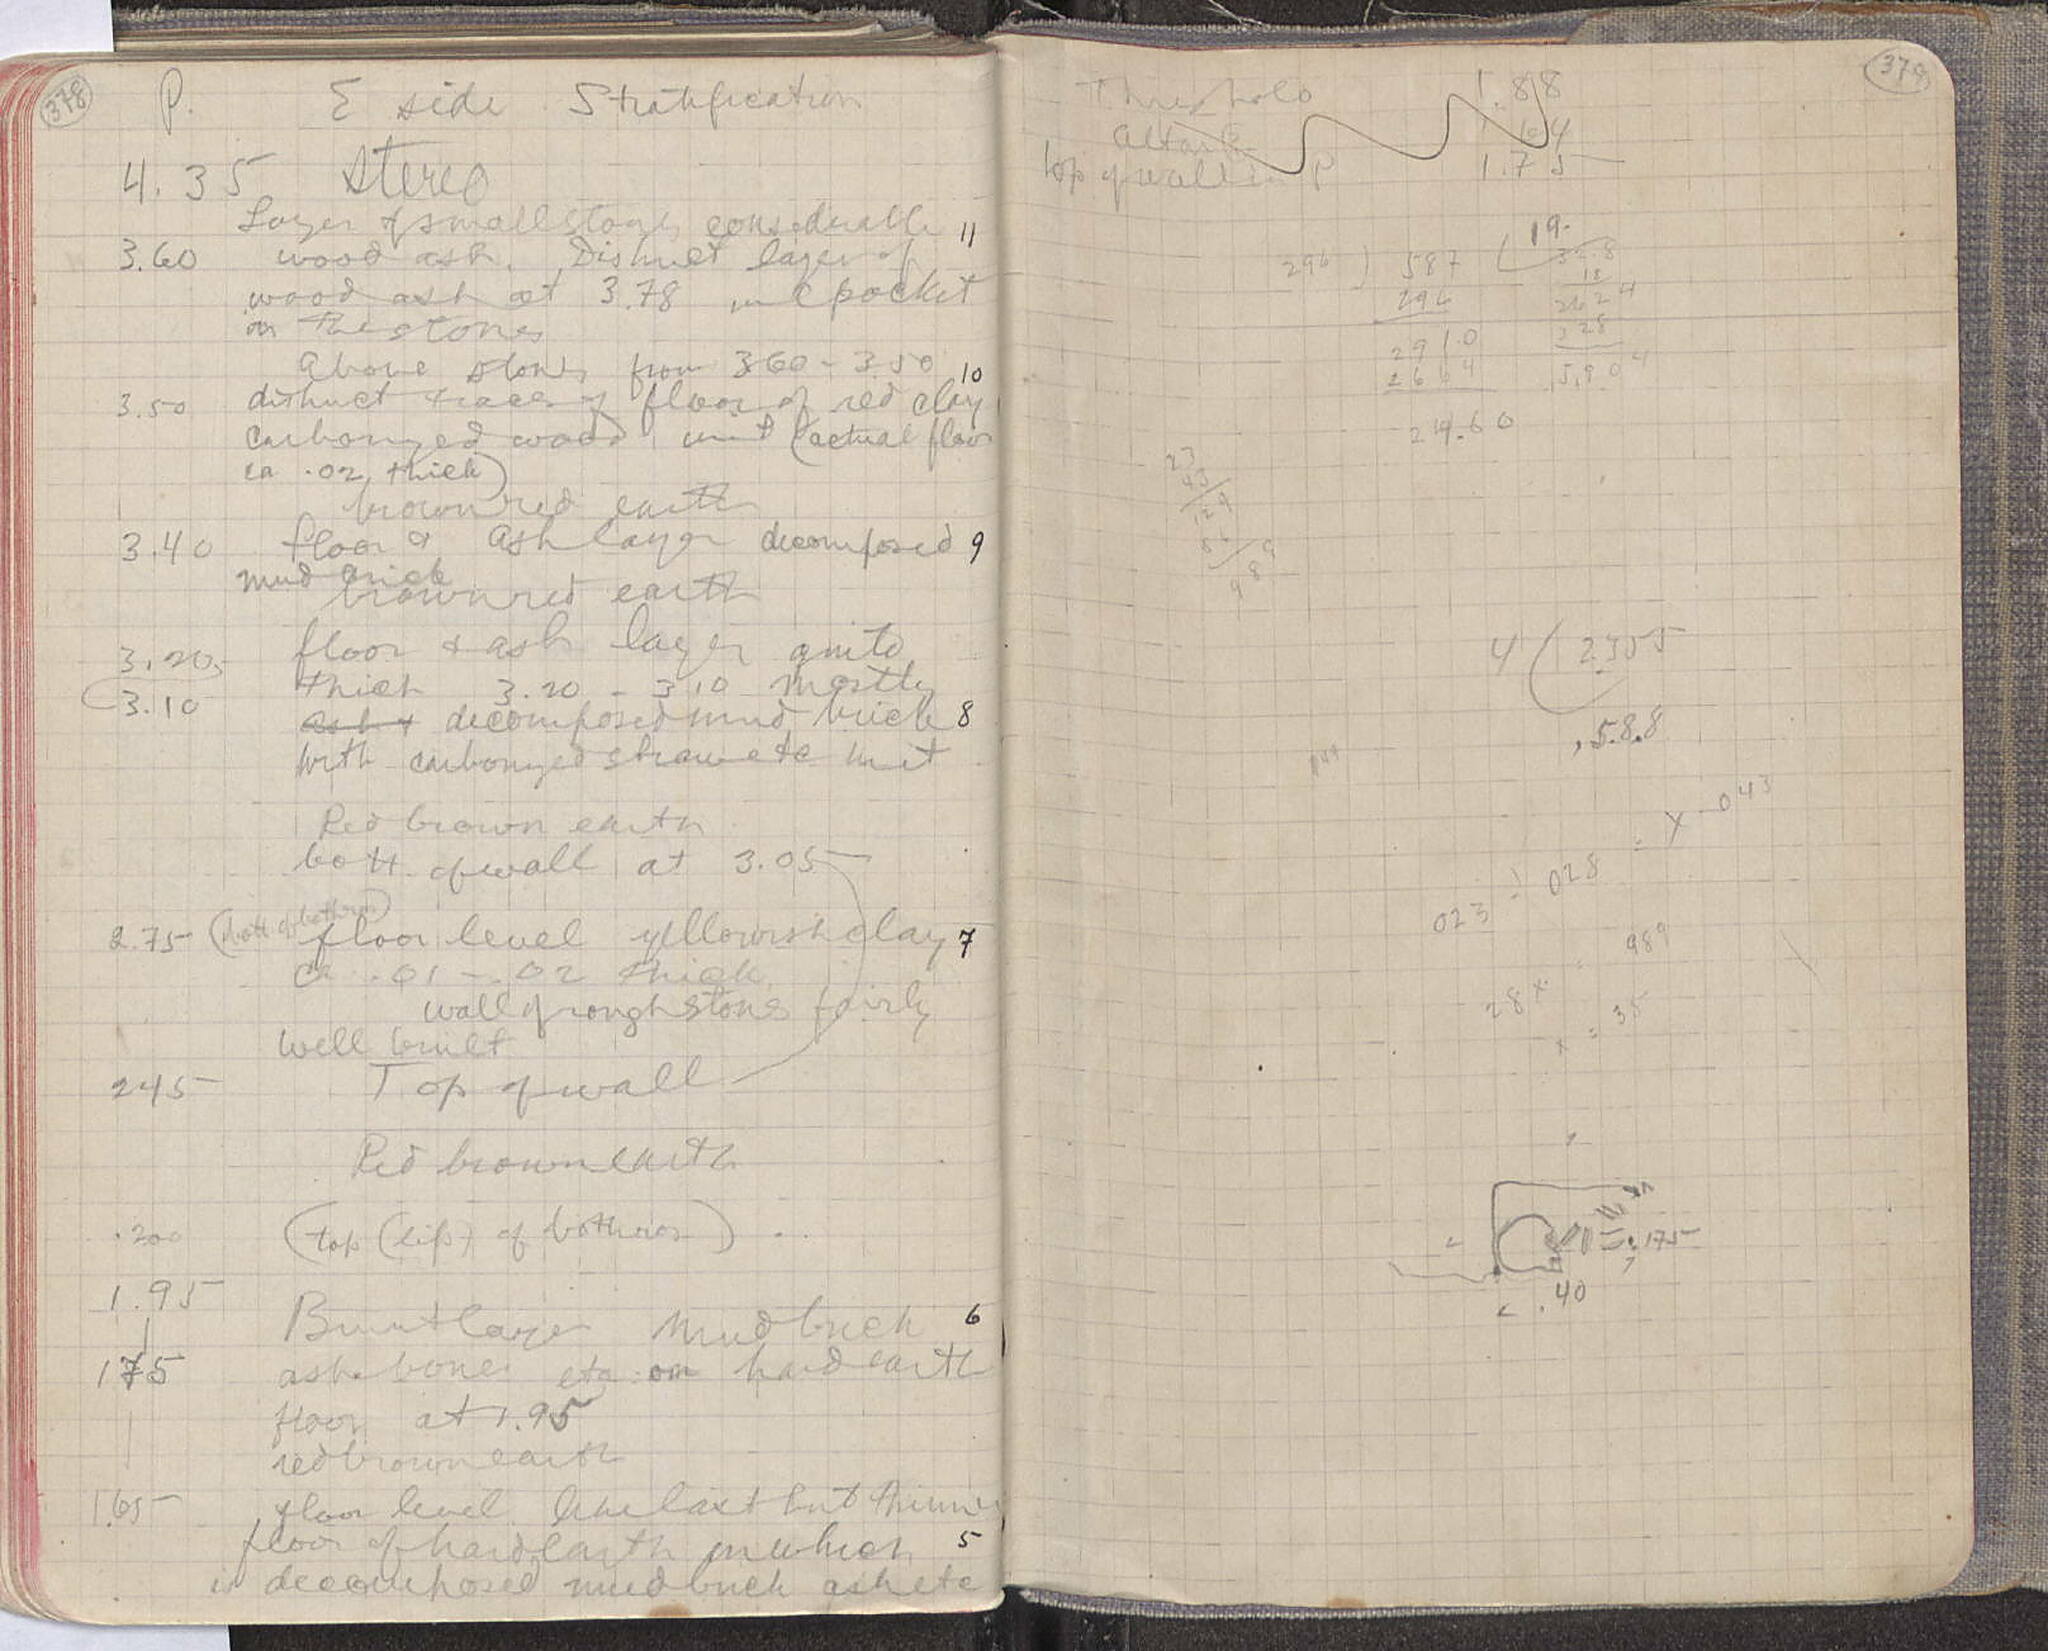 378
P. E side Stratification
4.35 stereo
Layer of small stones considerable 11
3.60 wood ash. Distinct layer of
wood ash at 3.78 in a pocket
on the stones
Above stones from 3.60 - 3.50 10
3.50 distinct traces of floor of red clay
carbonized wood in it (actual floor
ca .02 thick)
brown red earth
3.40 floor & ash layer decomposed 9
mud brick
brown red earth
3.20 floor & ash layer quite
3.10 thick 3.20 - 3.10 mostly
ash & decomposed mud brick 8
with carbonized straw etc in it
Red brown earth
bott. of wall at 3.05
(bott of bothros)
2.75 floor level yellowish clay 7
ca .01 - .02 thick
wall of rough stones fairly
well built
245 Top of wall
Red brown earth
.200 (top (lip) of bothros)
1.95
Burnt layer mud brick 6
175 ash bones etc on hard earth
floor at 1.95
red brown earth
1.65 floor level like last but thinner
floor of hard earth in which 5
is decomposed mud brick ash etc
379
Threshold 1.88
Altar
top of wall in P 1.75
19.
296 ) 587 ( 328
296 18
2624
328
2910 5,904
2664
24.60
23
43
129
989
4 ( 2355
.588
023 : 028 = x - 043
989
28x
x = 35
.175
.40